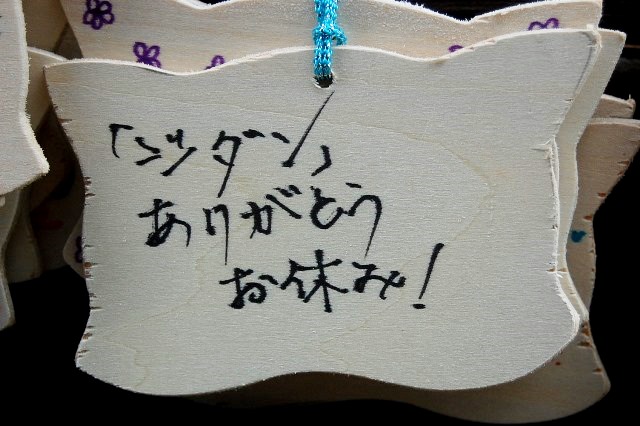 「ジダン」
ありがとう
お休み!